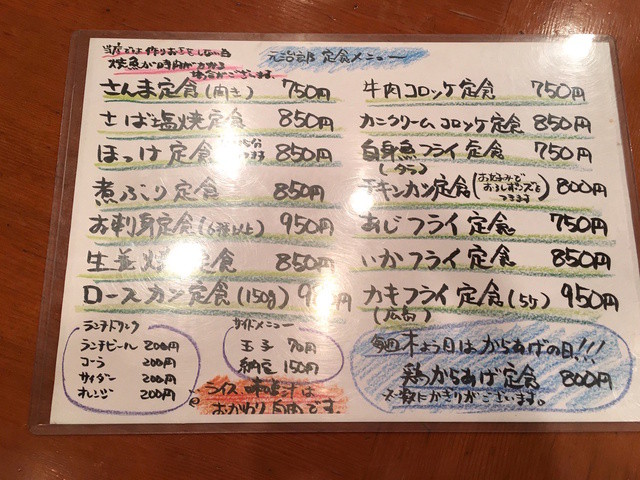 当店では作りおきをしない為
焼魚が時間がかかる
場合がございます。
元治郎 定食メニュー
さんま定食(開き) 750円
さば塩焼定食 850円
ほっけ定食 850円
煮ぶり定食 850円
お刺身定食(6種以上) 950円
生姜焼定食 850円
ロースカツ定食(150g)
牛肉コロッケ定食 750円
カニクリームコロッケ定食 850円
白身魚フライ定食 750円
(タラ)
チキンカツ定食(お好みでおろしポンズをつけます) 800円
あじフライ定食 750円
いかフライ定食 850円
カキフライ定食(5ヶ) 950円
(広島)
ランチドリンク
ランチビール 200円
コーラ 200円
サイダー 200円
オレンジ 200円
サイドメニュー
玉子 70円
納豆 150円
ライス味噌汁は
おかわり自由です。
毎回木よう日はからあげの日!!!
鶏からあげ定食 800円
※数にかぎりがございます。